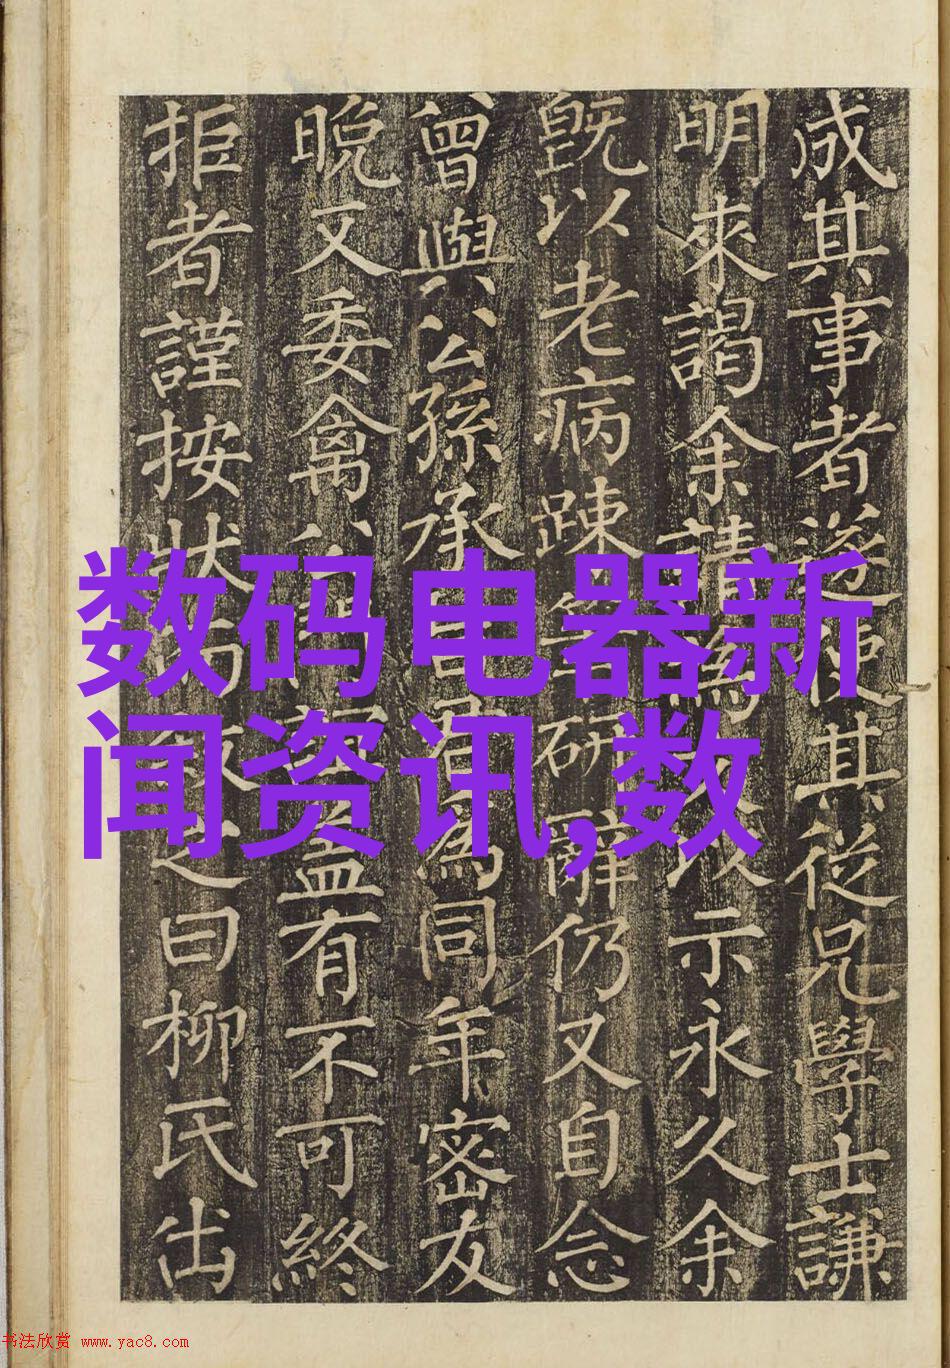 成其事者遂使其從兄學士謙
明來謁余請為以示永久余
旣以老病疎研辭仍又自念
曾與公孫承為同年密友
晚又委禽有不可終
拒者謹按狀之曰柳氏出
数码电器新
闻资讯,数
书法欣赏 www.yac8.com